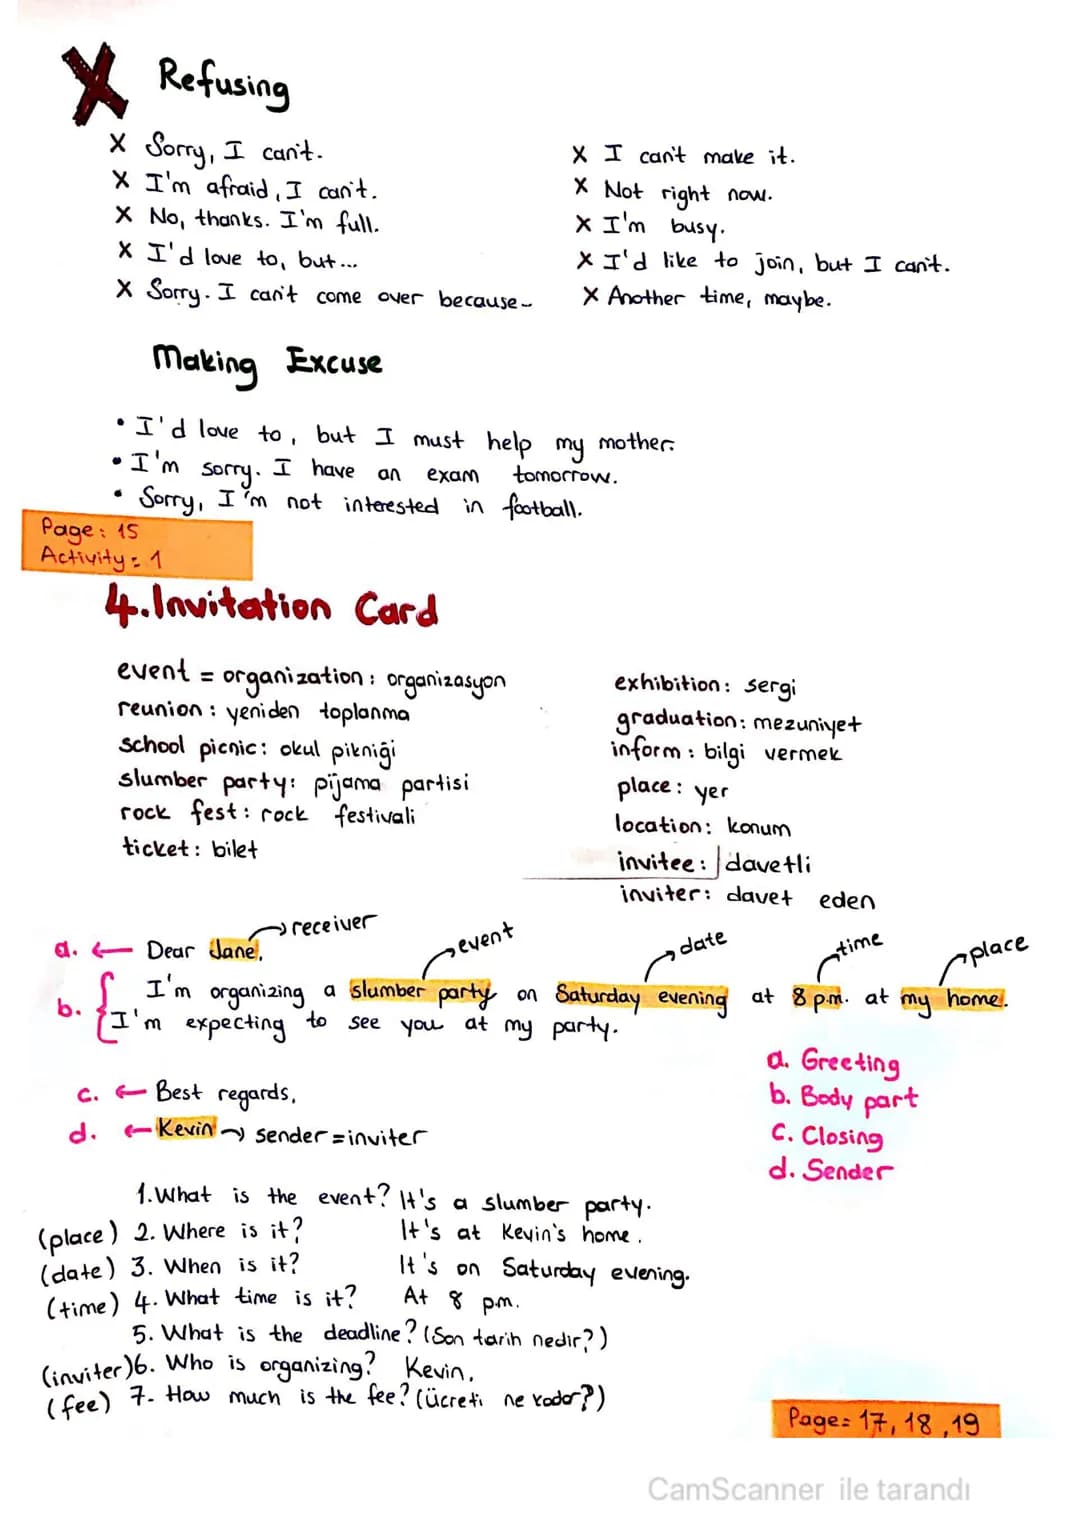 X Refusing
X Sorry, I can't.
X I'm afraid, I can't.
X No, thanks. I'm full.
X I'd love to, but...
X Sorry. I can't come over because...
X I can't make it.
X Not right now.
X I'm busy.
X I'd like to join, but I can't.
X Another time, maybe.
Making Excuse
• I'd love to, but I must help my mother.
• I'm sorry. I have an exam tomorrow.
• Sorry, I'm not interested in football.
Page: 15
Activity: 1
4. Invitation Card
event = organization: organizasyon
reunion: yeniden toplanma
school picnic: okul pikniği
slumber party: pijama partisi
rock fest: rock festivali
ticket: bilet
exhibition: sergi
graduation: mezuniyet
inform: bilgi vermek
place: yer
location: konum
invitee: davetli
inviter: davet eden
receiver
event
date
time
place
a. ← Dear Jane,
b. { I'm organizing a slumber party on Saturday evening at 8 p.m. at my home.
I'm expecting to see you at my party.
c. ← Best regards,
d. ← Kevin → sender = inviter
a. Greeting
b. Body part
c. Closing
d. Sender
1. What is the event? It's a slumber party.
(place) 2. Where is it? It's at Kevin's home.
(date) 3. When is it? It's on Saturday evening.
(time) 4. What time is it? At 8 p.m.
5. What is the deadline? (Son tarih nedir?)
(inviter) 6. Who is organizing? Kevin.
(fee) 7. How much is the fee? (ücreti ne kadar?)
Page: 17, 18, 19
CamScanner ile tarandı